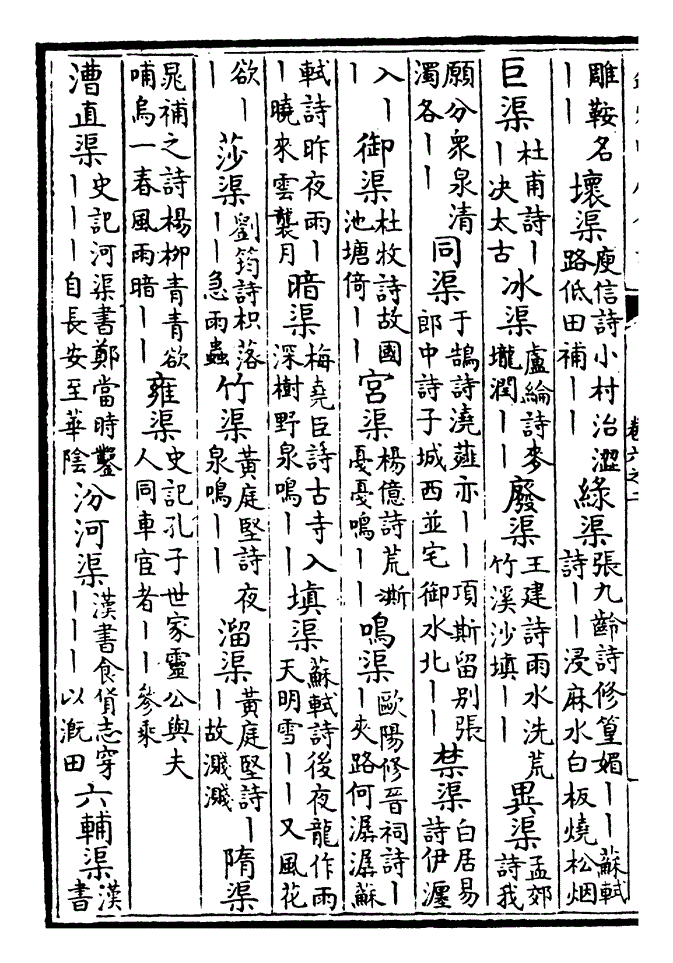 雕鞍名｜｜ 壞渠 庾信詩小村治澀路低田補｜｜ 綠渠 張九齡詩修篁媚｜｜蘇軾詩｜｜浸麻水白板燒松烟
巨渠 杜甫詩｜｜決太古 冰渠 盧綸詩麥壠潤｜｜ 廢渠 王建詩雨水洗荒竹溪沙填｜｜ 異渠 孟郊詩我
願分衆泉清濁各｜｜ 同渠 于鵠詩澆蔬亦｜｜項斯留別張郎中詩子城西並宅御水北｜｜ 禁渠 白居易詩伊瀍
入｜｜ 御渠 杜牧詩故國池塘倚｜｜ 宮渠 楊億詩荒凘憂憂鳴｜｜ 鳴渠 歐陽修晉祠詩｜｜夾路何潺潺蘇
軾詩昨夜雨｜｜曉來雲襲月 暗渠 梅堯臣詩古寺入深樹野泉鳴｜｜ 填渠 蘇軾詩後夜龍作雨天明雪｜｜又風花
欲｜｜ 莎渠 劉筠詩枳落｜｜急雨蟲 竹渠 黃庭堅詩夜泉鳴｜｜ 溜渠 黃庭堅詩｜｜故濺濺 隋渠
晁補之詩楊柳青青欲哺烏一春風雨暗｜｜ 雍渠 史記孔子世家靈公與夫人同車宦者｜｜參乘
漕直渠 史記河渠書鄭當時鑿｜｜｜自長安至華陰 汾河渠 漢書食貨志穿｜｜｜以漑田 六輔渠 漢書